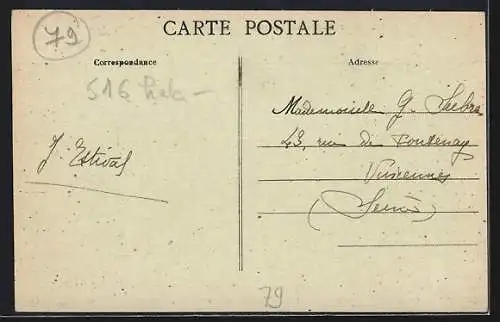 79
CARTE POSTALE
Correspondance
Adresse
516
Mademoiselle G.
J. Estival
43, rue de Fontenay
Vincennes
(Seine)
79